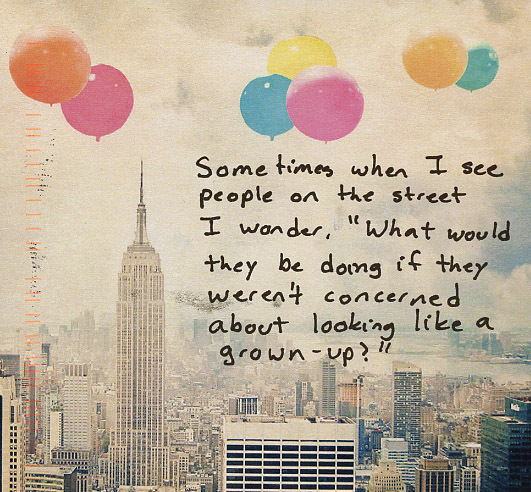 Sometimes when I see
people on the street
I wonder, "What would
they be doing if they
weren't concerned
about looking like a
grown-up?"